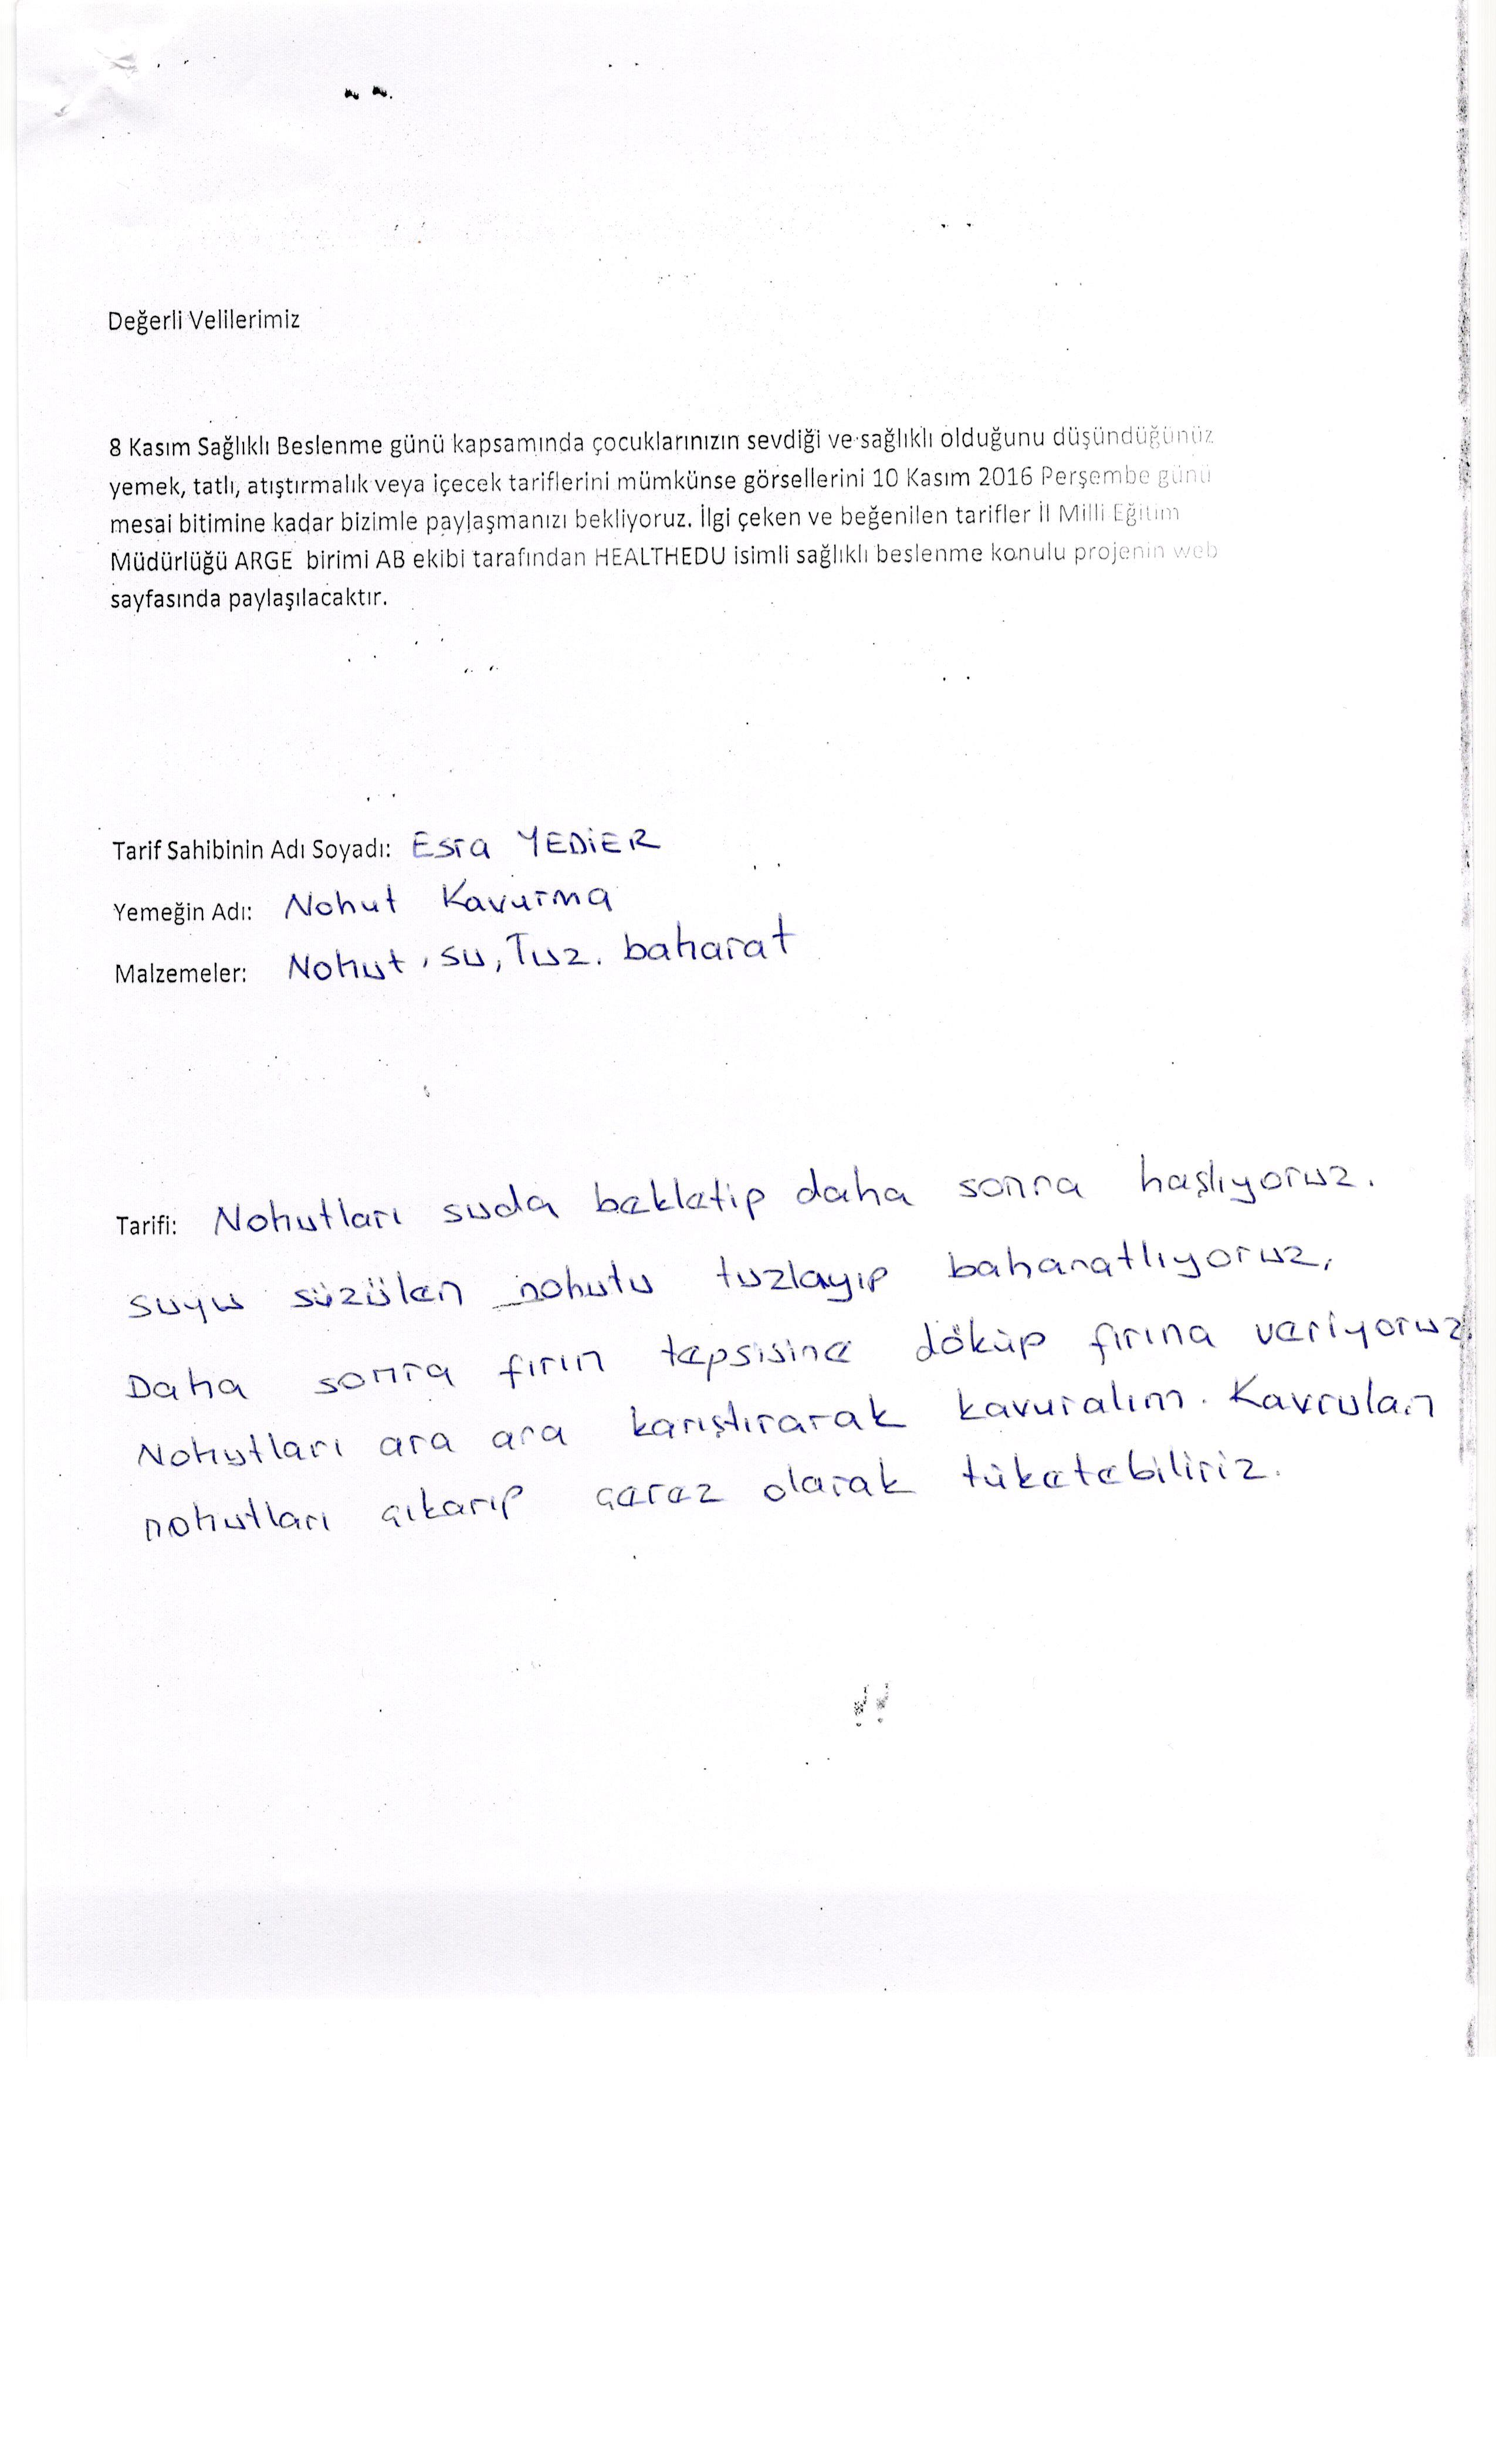 Değerli Velilerimiz
8 Kasım Sağlıklı Beslenme günü kapsamında çocuklarınızın sevdiği ve sağlıklı olduğunu düşündüğünüz
yemek, tatlı, atıştırmalık veya içecek tariflerini mümkünse görsellerini 10 Kasım 2016 Perşembe günü
mesai bitimine kadar bizimle paylaşmanızı bekliyoruz. İlgi çeken ve beğenilen tarifler İl Milli Eğitim
Müdürlüğü ARGE birimi AB ekibi tarafından HEALTHEDU isimli sağlıklı beslenme konulu projenin web
sayfasında paylaşılacaktır.
Tarif Sahibinin Adı Soyadı: Esra YEDİER
Yemeğin Adı: Nohut Kavurma
Malzemeler: Nohut, su, Tuz. baharat
Tarifi: Nohutları suda bekletip daha sonra haşlıyoruz.
suyu süzülen nohutu tuzlayıp baharatlıyoruz,
Daha sonra fırın tepsisine döküp fırına veriyoruz.
Nohutları ara ara karıştırarak kavuralım. Kavrulan
nohutları çıkarıp çerez olarak tüketebiliriz.